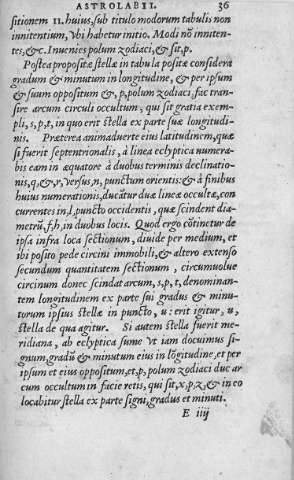 ASTROLABII. 36
sitionem 11. huius, sub titulo modorum tabulis non
innitentium, vbi habetur initio. Modi nō inniten-
tes, &c. Inuenies polum zodiaci, & sit, p.
Postea propositæ stellæ in tabula positæ considera
gradum & minutum in longitudine, & per ipsum
& suum oppositum &, p, polum zodiaci, fac tran-
sire arcum circuli occultum, qui sit gratia exem-
pli, s, p, t, in quo erit stella ex parte suæ longitudi-
nis. Præterea animaduerte eius latitudinem, quæ
si fuerit septentrionalis, à linea ecliptica numera-
bis eam in æquatore à duobus terminis declinatio-
nis, q, &, r, versus, n, punctum orientis: & à finibus
huius numerationis, ducātur duæ lineæ occultæ, con
currentes in, l, puncto occidentis, quæ scindent dia-
metrū, f, h, in duobus locis. Quod ergo cōtinetur de
ipsa infra loca sectionum, diuide per medium, et
ibi posito pede circini immobili, & altero extenso
secundum quantitatem sectionum, circumuolue
circinum donec scindat arcum, s, p, t, denominan-
tem longitudinem ex parte sui gradus & minu-
torum ipsius stellæ in puncto, u: erit igitur, u,
stella de qua agitur. Si autem stella fuerit me-
ridiana, ab ecliptica sume vt iam docuimus si-
gnum, gradū & minutum eius in lōgitudine, et per
ipsum et eius oppositum, et, p, polum zodiaci duc ar
cum occultum in facie retis, qui sit, x, p, z, & in eo
locabitur stella ex parte signi, gradus et minuti.
E iiij